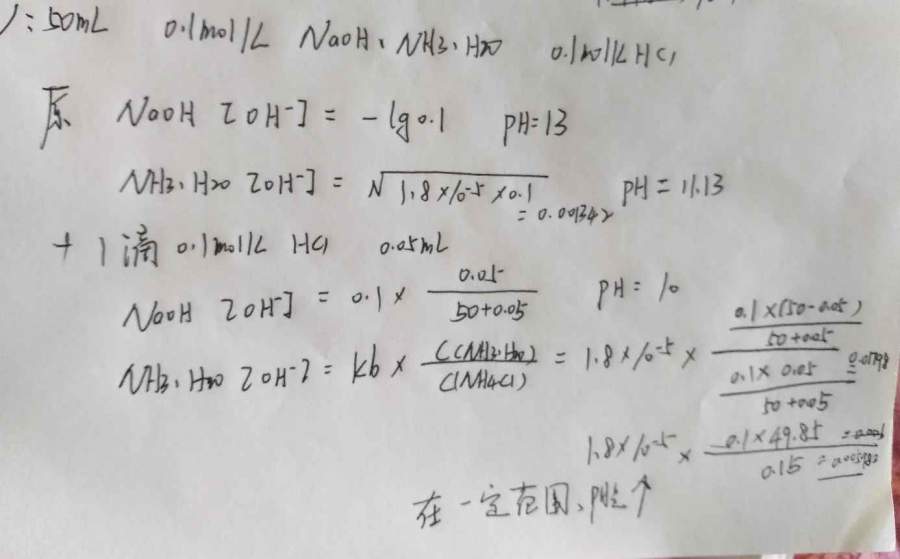 1:50mL 0.1mol/L NaOH、NH3·H2O 0.1mol/L HCl
原 NaOH [OH-] = -lg0.1 pH=13
NH3·H2O [OH-] = √1.8×10-5×0.1 = 0.001342 pH = 11.13
+ 1滴 0.1mol/L HCl 0.05mL
NaOH [OH-] = 0.1 × 0.05/50+0.05 pH = 10
NH3·H2O [OH-] = kb × C(NH3·H2O)/C(NH4Cl) = 1.8×10-5 × 0.1×(50-0.05)/50+0.05 / 0.1×0.05/50+0.05 = 0.01798
1.8×10-5 × 0.1×49.85/0.15
在一定范围、pH ↑